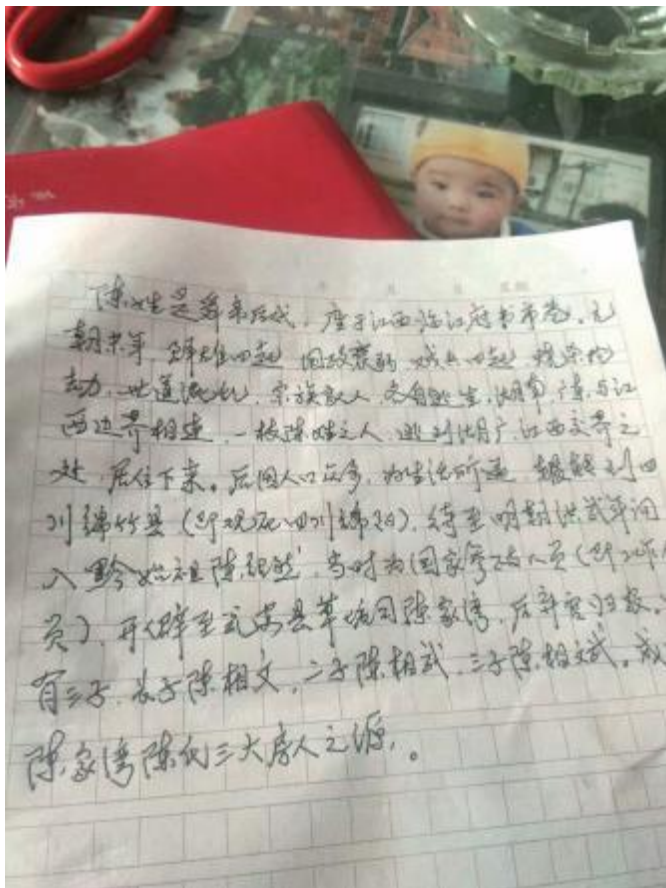 陈姓是舜帝后代，座于江西临江府书市巷。元
朝末年，群雄四起 国政衰弱 战火四起，
动，世道混乱，宗族家人 各自逃生，湖广与江
西边界相连，一枝陈姓之人 逃到湖广江西交界之
处，居住下来。后因人口众多，为生活所逼，辗转到四
川绵竹县（即现在四川绵竹），待至明朝洪武年间
入黔始祖陈 当时为国家 人员（即工作
员），开辟至 县草塘司陈家湾，后辞官归家。
有三子，长子陈相文，二子陈相武，三子陈相斌。成
陈家湾陈氏三大房人之源。